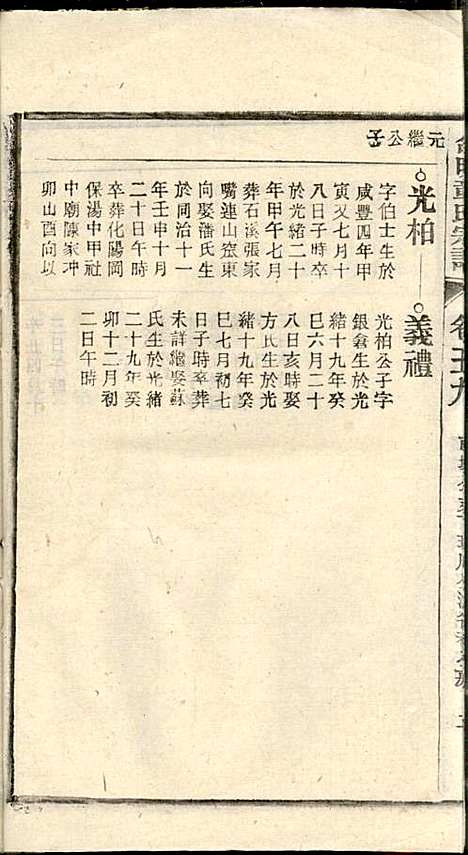 元繼公子
光柏
字伯士生於
咸豐四年甲
寅又七月十
八日子時卒
於光緒二十
年甲午七月
葬石溪張家
嘴連山窰東
向娶潘氏生
於同治十一
年壬申十月
二十日午時
卒葬化陽岡
保湯中甲社
中廟陳家冲
卯山酉向以
義禮
光柏公子字
銀倉生於光
緒十九年癸
巳六月二十
八日亥時娶
方氏生於光
緒十九年癸
巳七月初七
日子時卒葬
未詳繼娶蘇
氏生於光緒
二十九年癸
卯十二月初
二日午時